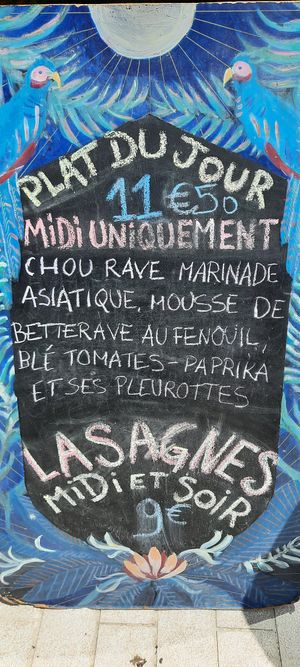 PLAT DU JOUR
11€50
MIDI UNIQUEMENT
CHOU RAVE MARINADE
ASIATIQUE, MOUSSE DE
BETTERAVE AU FENOUIL,
BLÉ TOMATES-PAPRIKA
ET SES PLEUROTTES
LASAGNES
MIDI ET SOIR
9€